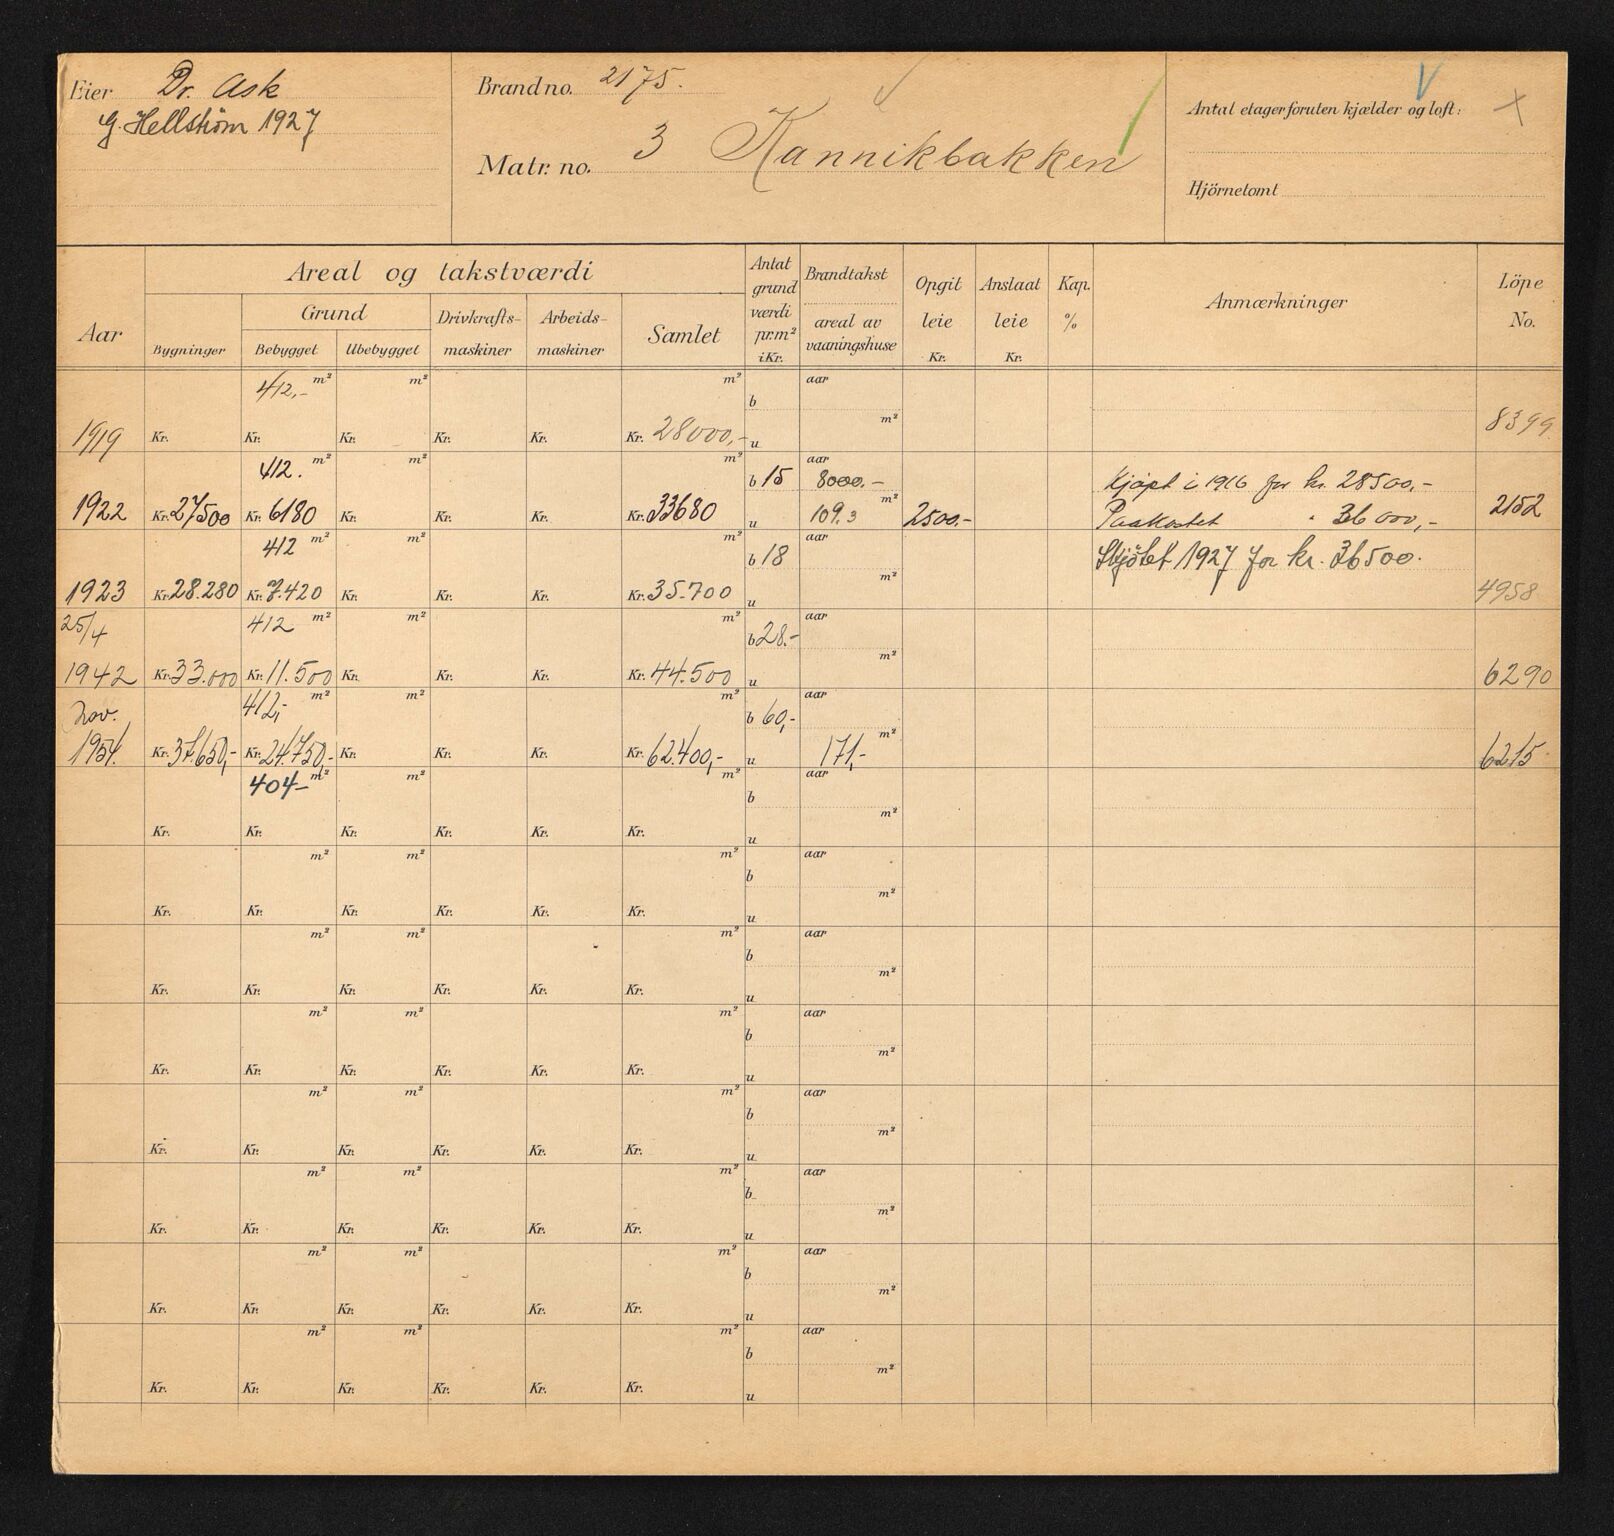 Eier Dr. Ask
G. Hellström 1927
Brand no. 2175.
Matr. no. 3 Kannikbakken
Antal etager foruten kjælder og loft:
Hjörnetomt
Aar
Areal og takstværdi
Bygninger
Grund
Bebygget Ubebygget
Drivkrafts-
maskiner
Arbeids-
maskiner
Samlet
Antat
grund
værdi
pr. m²
i Kr.
Brandtakst
areal av
vaaningshuse
Opgit
leie
Kr.
Anslaat
leie
Kr.
Kap.
%
Anmærkninger
Löpe
No.
412,- m² m² m² b aar
m²
1919 Kr. Kr. Kr. Kr. Kr. Kr. 28000,- u 8399
412. m² m² m² b 15 aar 8000.- Kjøpt i 1916 for kr. 28500,-
m²
1922 Kr. 27500 Kr. 6180 Kr. Kr. Kr. Kr. 33680 u 109.3 2500.- Paakostet " 36000,- 2152
412 m² m² m² b 18 aar Skjötet 1927 for kr. 36500.
m²
1923 Kr. 28.280 Kr. 7.420 Kr. Kr. Kr. Kr. 35.700 u 4958
25/4 412 m² m² m² b 28.- aar
m²
1942 Kr. 33.000 Kr. 11.500 Kr. Kr. Kr. Kr. 44.500 u 6290
Nov. 412,- m² m² m² b 60,- aar
m²
1954. Kr. 37.650,- Kr. 24.750,- Kr. Kr. Kr. Kr. 62.400,- u 171,- 6215
404- m² m² m² b aar
m²
Kr. Kr. Kr. Kr. Kr. Kr. u
m² m² m² b aar
m²
Kr. Kr. Kr. Kr. Kr. Kr. u
m² m² m² b aar
m²
Kr. Kr. Kr. Kr. Kr. Kr. u
m² m² m² b aar
m²
Kr. Kr. Kr. Kr. Kr. Kr. u
m² m² m² b aar
m²
Kr. Kr. Kr. Kr. Kr. Kr. u
m² m² m² b aar
m²
Kr. Kr. Kr. Kr. Kr. Kr. u
m² m² m² b aar
m²
Kr. Kr. Kr. Kr. Kr. Kr. u
m² m² m² b aar
m²
Kr. Kr. Kr. Kr. Kr. Kr. u